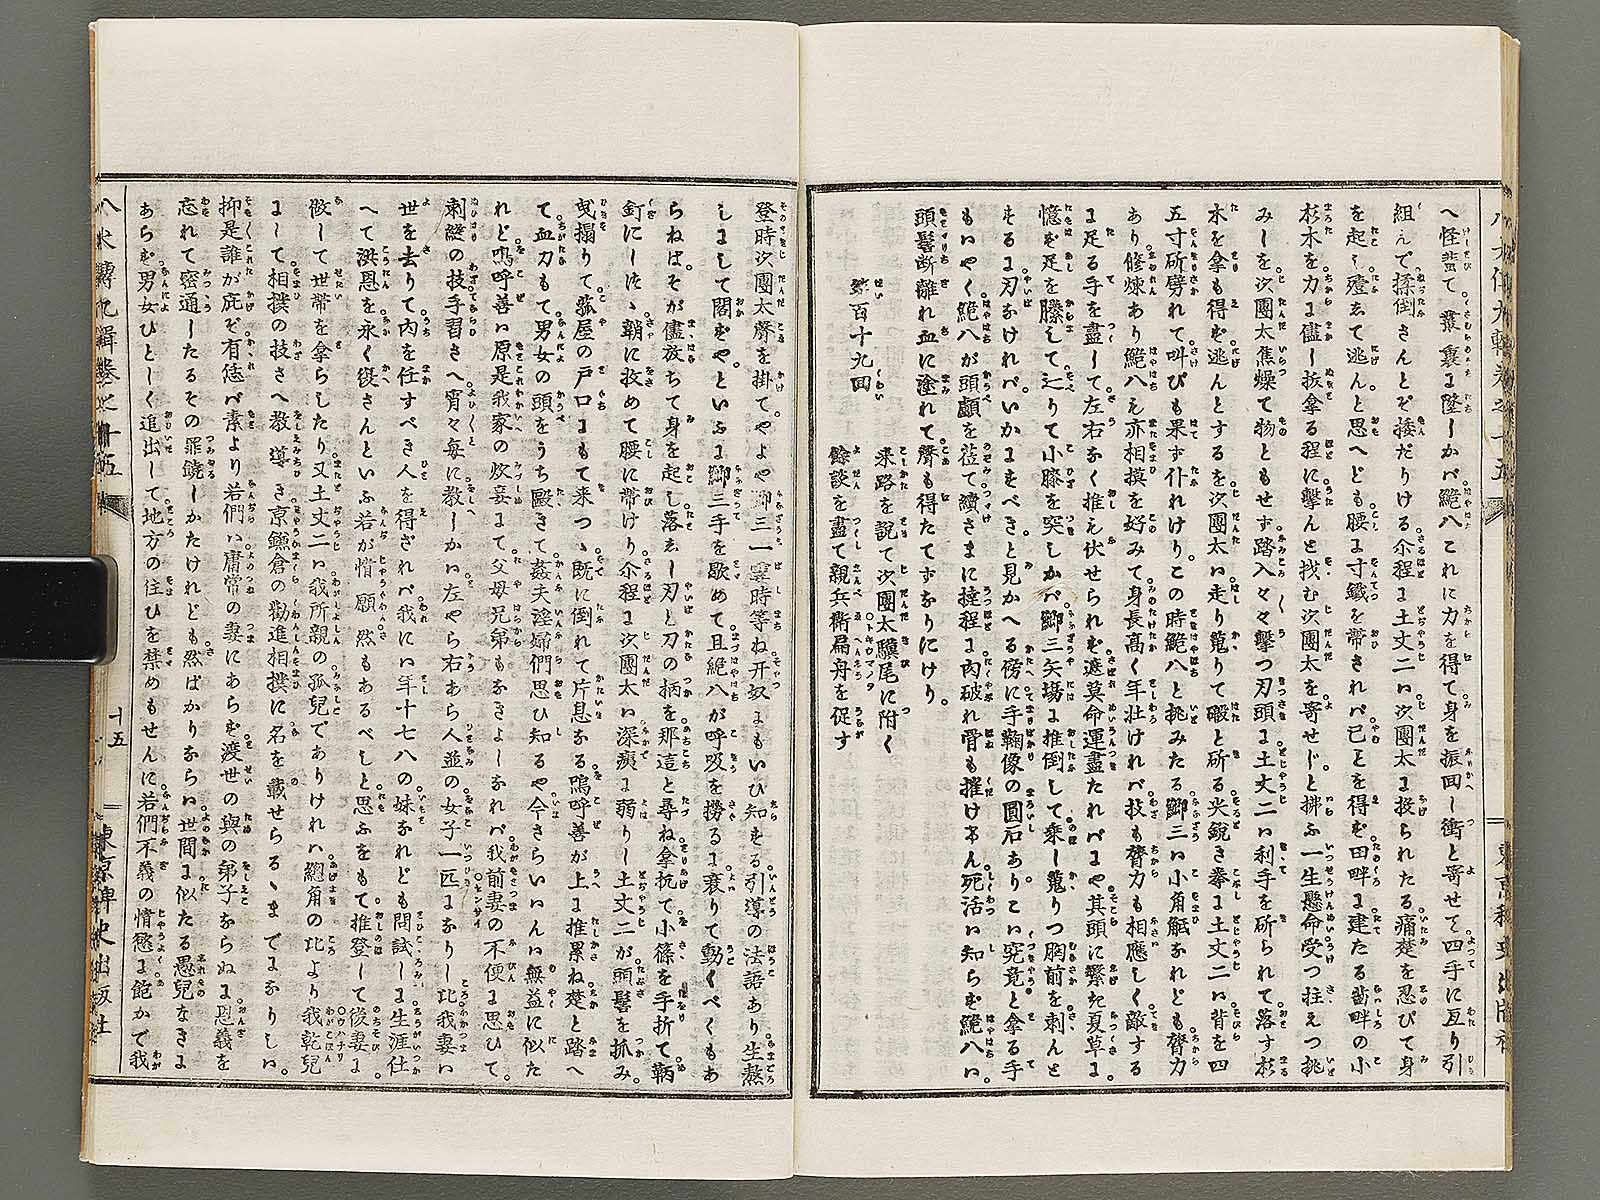 へ怪蜚て叢裏に墜しかバ鮠八これに力を得て身を振回し衝と寄せて四手に亙り引
組んで揉倒さんとぞ捼だりける尒程に土丈二ハ次團太に投られたる痛楚を忍びて身
を起し殪まて逃んと思へども腰に寸鐵を帯されバ已ことを得ず田畔に建たる畨畔の小
杉木を力に儘し抜拿る程に撃んと找む次團太を寄せじと拂ふ一生懸命受つ拄えつ挑
みしを次團太焦燥て物ともせず踏入々々撃つ刃頭に土丈二ハ利手を斫られて落す杉
木を拿も得ず逃んとするを次團太ハ走り蒐りて礑と斫る尖鋭き拳に土丈二ハ背を四
五寸斫劈れて叫びも果ず仆れけり。この時鮠八と挑みたる鯽三ハ小角觝なれども膂力
あり修煉あり鮠八も亦相撲を好みて身長高く年壮けれバ技も膂力も相應しく敵する
に足る手を盡して左右なく推も伏せられず遮莫命運盡たれバにや其頭に繁き夏草に。
憶ず足を滕して辷りて小膝を突しかバ鯽三矢塲に推倒して乘し蒐りつ胸前を刺んと
するに刃なけれバ。いかにすべき。と見かへる傍に手鞠像の圓石ありこハ究竟と拿る手
もいやく鮠八が頭顱を莅て續さまに撻程に肉破れ骨も摧けけん死活ハ知らず鮠八ハ。
頭髻断離れ血に塗れて聲も得たてずなりにけり。
第百十九回
来路を説て次團太驥尾に附く
餘談を盡て親兵衛扁舟を促す
登時次團太聲を掛て。やよや鯽三一霎時等ね开奴にもいひ知する引導の法語あり生熬
しまして閣ずや。といふに鯽三手を歇めて且鮠八が呼吸を撈るに衰りて動くべくもあ
らねばそが儘放ちて身を起し落せし刃と刃の柄を那這と尋ね拿抗て小篠を手折て鞆
釘にしつゝ鞘に收めて腰に帯けり尒程に次團太ハ深痍に弱りし土丈二が頭髻を抓み。
曳摺りて弧屋の戸口にもて来つゝ既に倒れて片息なる嗚呼善が上に推累ね楚と踏へ
て血刀もて男女の頭をうち毆きて姦夫淫婦們思ひ知るや今さらいハんハ無益に似た
れど嗚呼善ハ原是我家の炊妾にて父母兄弟もなきよしなれバ我前妻の不便に思ひて。
刺縫の技手習さへ宵々毎に教しかハ左やら右あら人並の女子一匹になりし比我妻ハ
世を去りて内を任すべき人を得ざれバ我にハ年十七八の妹なれども問試しに生涯仕
へて洪恩を永く復さんといふ若が情願然もあるべしと思ふをもて推登して後妻に
做して世帯を拿らしたり又土丈二ハ我所親の孤兒でありけれハ總角の比より我乾兒
にして相撲の技さへ教導き京鎌倉の勸進相撲に名を載せらるゝまでになりしハ。
抑是誰が庇ぞ有恁バ素より若們ハ庸常の妻にあらず渡世の與の弟子ならぬに恩義を
忘れて密通したるその罪饒しかたけれども然ばかりならハ世間に似たる愚兒なきに
あらず男女ひとしく追出して地方の住ひを禁めもせんに若們不義の情慾に飽かで我
八犬傳九輯巻之十五
十五
東京稗史出版社